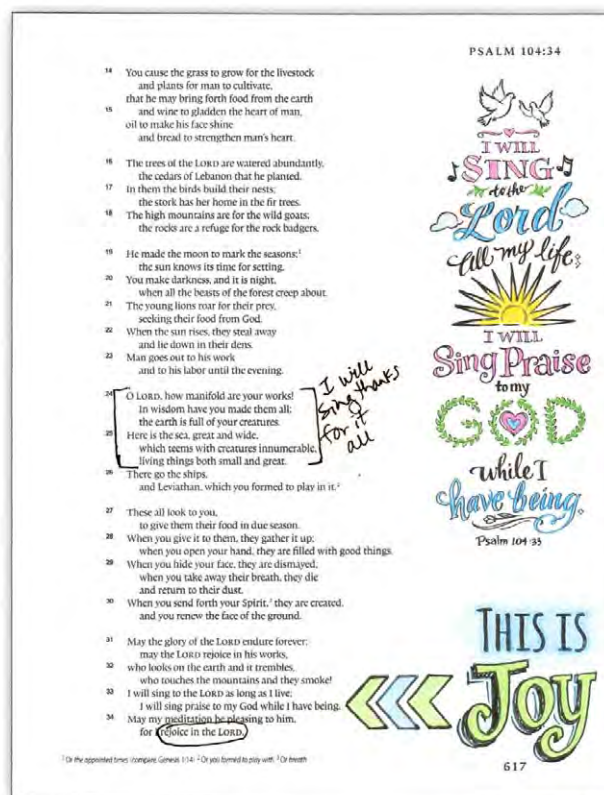 PSALM 104:34
14 You cause the grass to grow for the livestock
and plants for man to cultivate,
that he may bring forth food from the earth
15 and wine to gladden the heart of man,
oil to make his face shine
and bread to strengthen man's heart.
16 The trees of the LORD are watered abundantly,
the cedars of Lebanon that he planted.
17 In them the birds build their nests;
the stork has her home in the fir trees.
18 The high mountains are for the wild goats;
the rocks are a refuge for the rock badgers.
19 He made the moon to mark the seasons;1
the sun knows its time for setting.
20 You make darkness, and it is night,
when all the beasts of the forest creep about.
21 The young lions roar for their prey,
seeking their food from God.
22 When the sun rises, they steal away
and lie down in their dens.
23 Man goes out to his work
and to his labor until the evening.
24 O LORD, how manifold are your works!
In wisdom have you made them all;
the earth is full of your creatures.
25 Here is the sea, great and wide,
which teems with creatures innumerable,
living things both small and great.
26 There go the ships,
and Leviathan, which you formed to play in it.2
27 These all look to you,
to give them their food in due season.
28 When you give it to them, they gather it up;
when you open your hand, they are filled with good things.
29 When you hide your face, they are dismayed;
when you take away their breath, they die
and return to their dust.
30 When you send forth your Spirit,3 they are created,
and you renew the face of the ground.
31 May the glory of the LORD endure forever;
may the LORD rejoice in his works,
32 who looks on the earth and it trembles,
who touches the mountains and they smoke!
33 I will sing to the LORD as long as I live;
I will sing praise to my God while I have being.
34 May my meditation be pleasing to him,
for I rejoice in the LORD.
1 Or the appointed times (compare Genesis 1:14) 2 Or you formed to play with 3 Or breath
I will
sing thanks
for it
all
I WILL
SING
to the
Lord
all my life;
I WILL
Sing Praise
to my
GOD
while I
have being.
Psalm 104:33
THIS IS
Joy
617